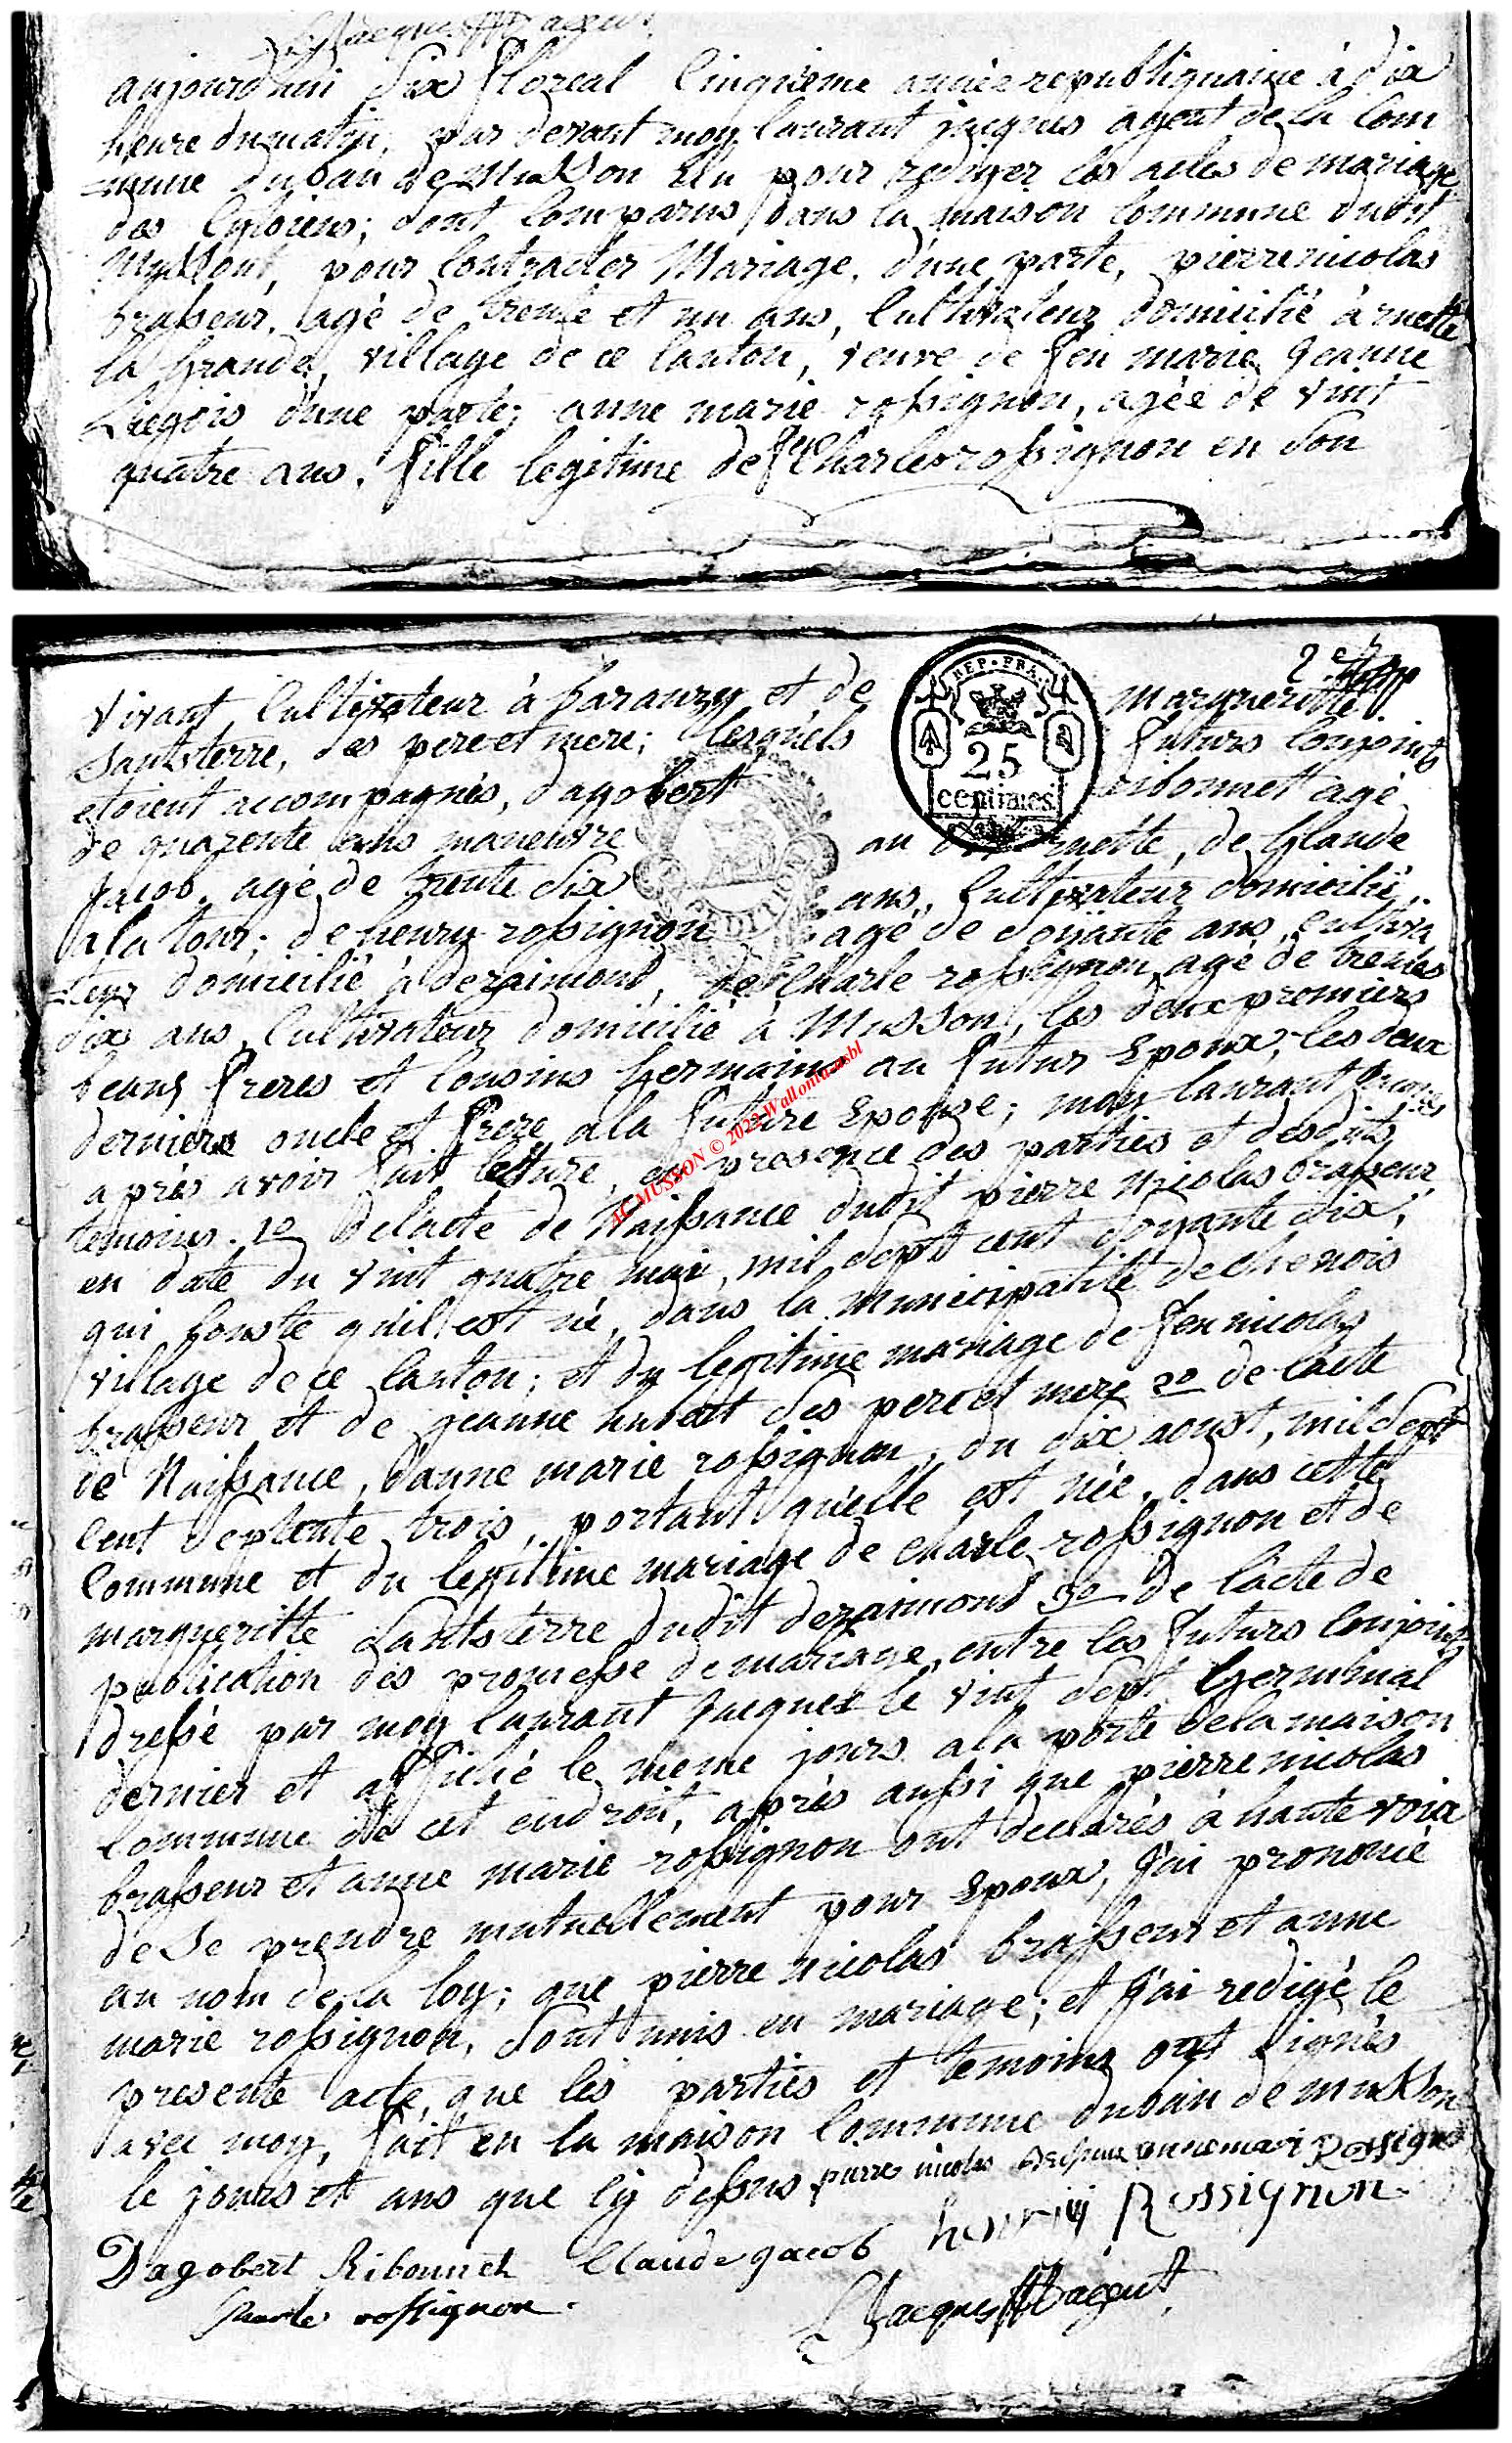 L Jacques agent
aujourdhui Six floreal Cinqvieme année republiquaine à dix
heure dumatin, par devant moy laurant jacques agent de la Com
=mune duban de Musson Elu pour rediger les actes de mariage
des Cytoiens; sont Comparus dans la maison Commune dudit
Mussont, pour Contracter Mariage, d'une parte, pierre nicolas
brasseur, agé de trente et un ans, Cultivateur domicilié à ruette
la Grande, village de ce Canton, veuve de feu marie Jeanne
Liegois d'une parte; anne marie rossignon, agée de vint
quatre ans, fille legitime de feu Charles rossignon en Son
2e
vivant, Cultivateur à baranzy et de margueritte
Santsterre, Ses pere et mere; lesquels futurs Conjoints
etoient accompagnés, dagobert ribonnet agé
de quarente ans maneuvre au dit ruette, de Claude
Jacob, agé de trente Six ans, Cultivateur domicilié
a la tour; de henry rossignon agé de soixante ans, cultiva
=teur domicilié à dezaimont, de Charle rossignon agé de trentes
dix ans, Cultivateur domicilié à Musson, les deux premiers
beaux freres et Cousins Germains au futur Epoux, les deux
derniers oncle et frere a la future Epouse; moy laurant Jacques
après avoir fait letture, en presence des parties et desdits
temoins. 1o Delacte de Naissance dudit pierre Nicolas brasseur,
en date du vint quatre mai, mil Sept cent soixante Six,
qui Conste qu'il est né, dans la Municipalité de chenois
village de ce Canton; et du legitime mariage de feu nicolas
brasseur et de jeanne hubert Ses pere et mere 2o de l'acte
de Naissance, danne marie rossignon, du dix aoust, mil Sept
Cent Septente trois, portant qu'elle est née, dans cette
Commune et du legitime mariage de Charle rossignon et de
margueritte Santsterre dudit dezaimont 3o de l'acte de
publication des promesse de mariage, entre les futurs Conjoints
dressé par moy laurant Jacques le vint Sept Germinal
dernier et affiché le meme jours a la porte de la maison
Commune de cet endroit, après aussi que pierre nicolas
brasseur et anne marie rossignon ont declarés à haute voix
de Se prendre mutuellement pour Epoux, J'ai prononcé
au nom de la loy; que pierre nicolas brasseur et anne
marie rossignon, Sont unis en mariage; et J'ai redigé le
presente acte, que les parties et temoins ont signés
avec moy, fait en la maison Commune duban de musson
le jours et ans que Cy dessus pierre nicolas brasseur anne mari Rossignon
henrij Rossignon
Dagobert Ribonnet Claude jacob
Charle rossignon.
L Jacques agent
REP. FRA.
25
centimes
AC MUSSON © 2022 Wallonia asbl